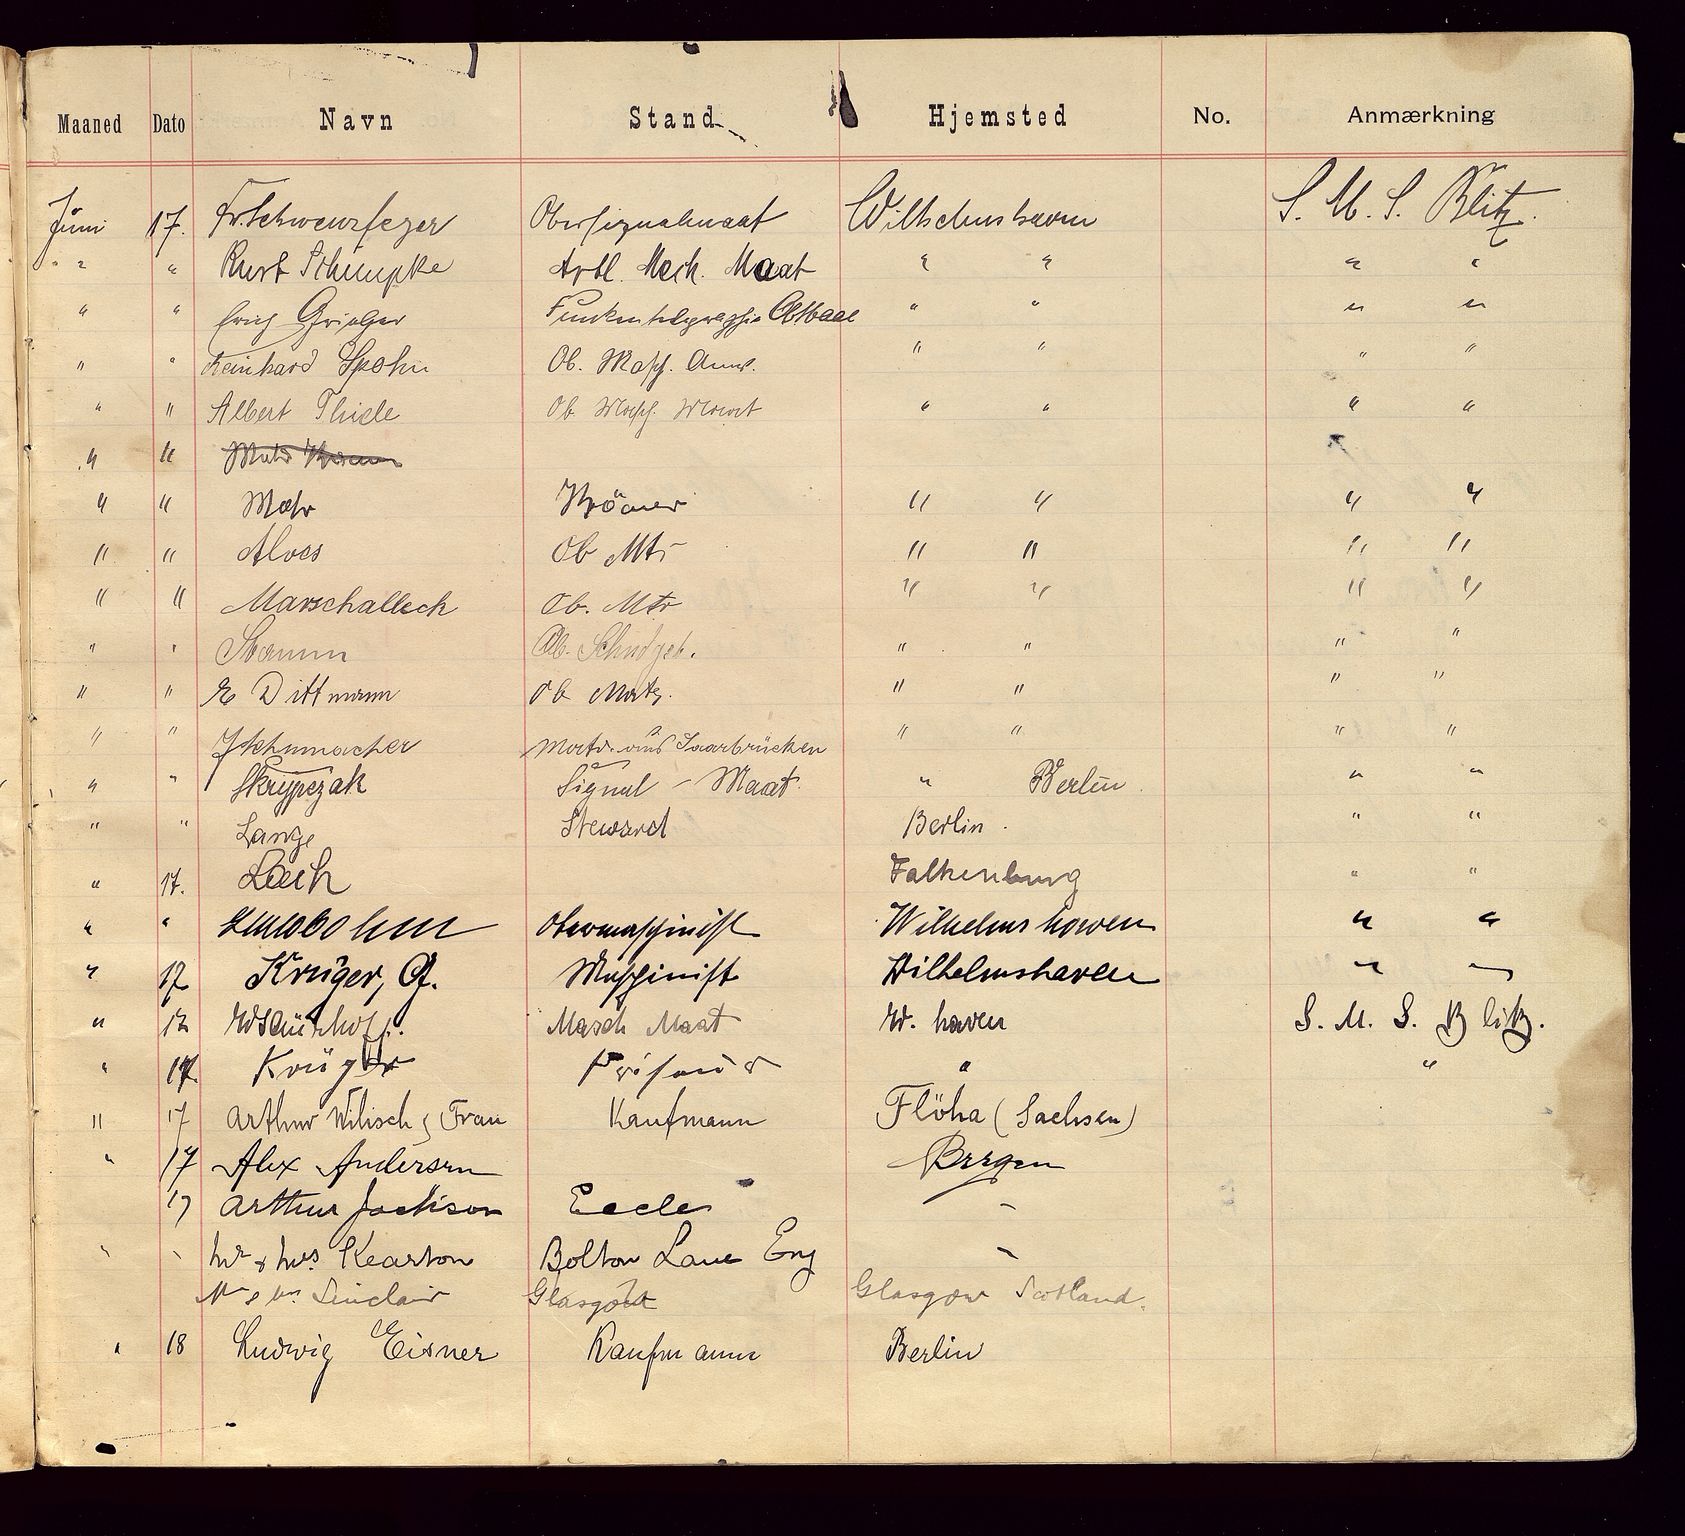 Maaned Dato Navn Stand Hjemsted No. Anmærkning
Juni 17. Fr. Schweinfeger Obersignalmaat Wilhelmshaven S. M. S. Blitz.
" " " Kurt Schimpke Artl. Mech. Maat " " " "
" " Erich Funkentelegraphie " " " "
" " Reinhard Spohn Ob. Masch. Anw. " " " "
" " Albert Thiele Ob. Masch. Maat " " " "
" "
" " Matr Krömer " " " "
" " Alves Ob Mtr " " " "
" " Marschalleck Ob. Mtr " " " "
" " Stamm Ob. " " " "
" " E Dittmann Ob Matr. " " " "
" " Schumacher Matr. aus Saarbrücken " " " "
" " Skrypczak Signal - Maat. " Berlin. " "
" " Lange Steward Berlin. " "
" 17. Falkenburg " "
" " Obermaschinist Wilhelmshaven " "
" 17 Krüger, O. Maschinist Wilhelmshaven " "
" 17 Masch Maat W. haven S. M. S. Blitz.
" 17. Krüger Friseur " "
" 17 Arthur Wilisch & Frau Kaufmann Flöha (Sachsen)
" 17 Alex Andersen Bergen
17 Arthur Jackson Eccles -
" " Mr & Mrs. Kearton Bolton Lane Eng -
Mr & Mrs. Sinclair Glasgow Glasgow Scotland.
" 18 Ludwig Eisner Kaufmann Berlin